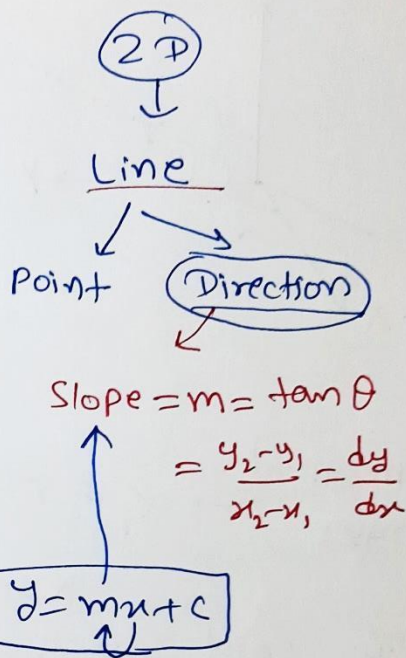 2D
Line
Point Direction
Slope = m = tan θ
= y₂-y₁/x₂-x₁ = dy/dx
y = mx + c